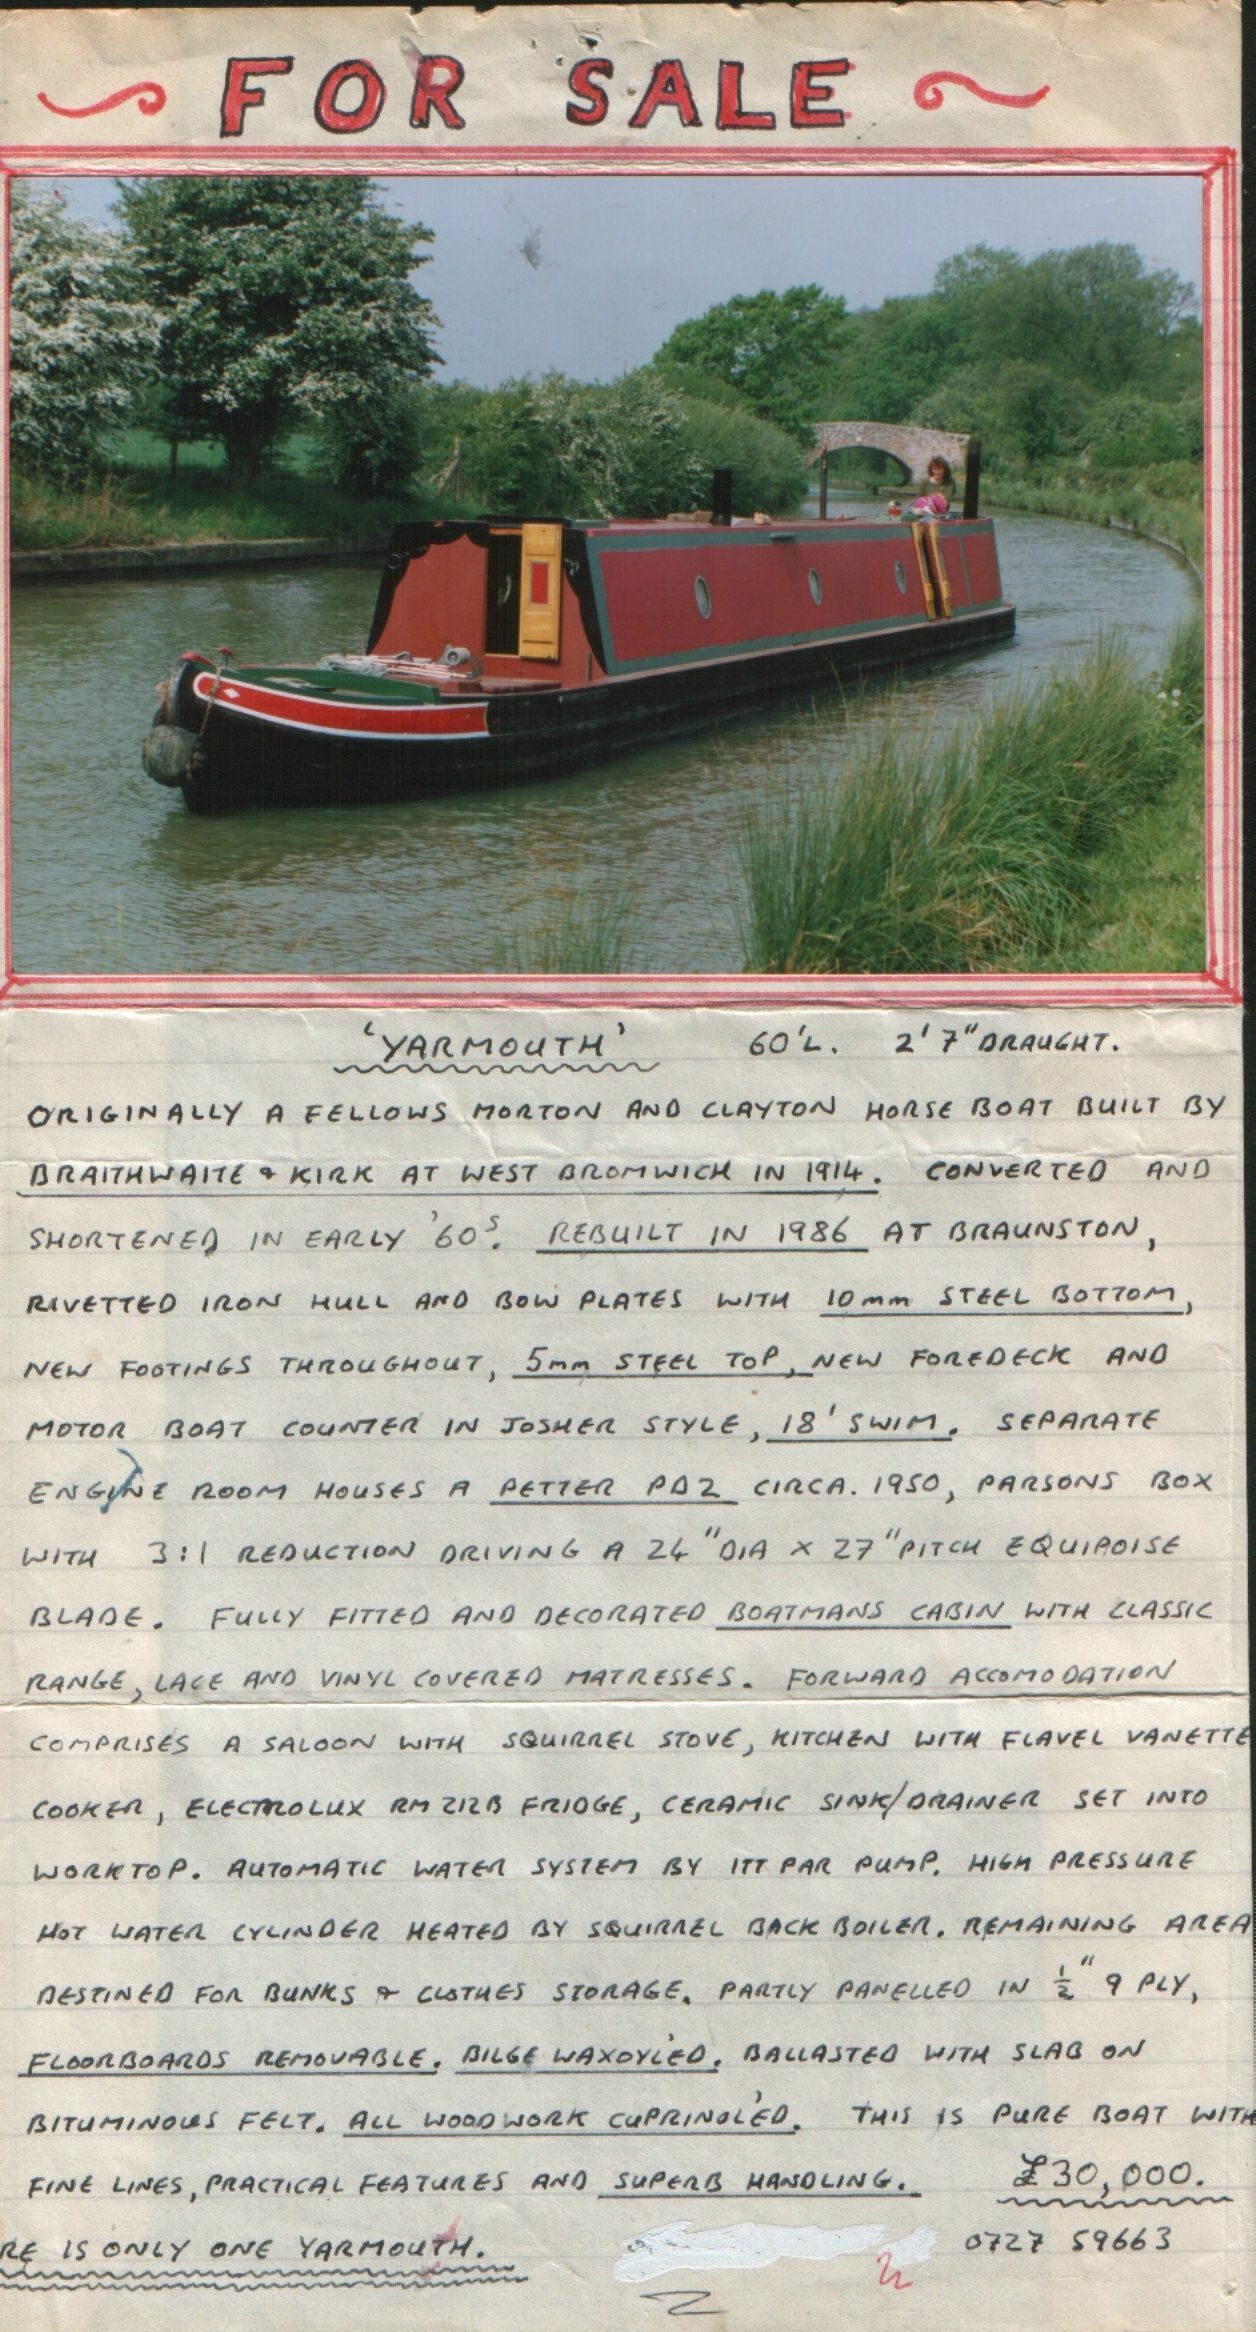 FOR SALE
'YARMOUTH' 60'L. 2' 7" DRAUGHT.
ORIGINALLY A FELLOWS MORTON AND CLAYTON HORSE BOAT BUILT BY
BRAITHWAITE & KIRK AT WEST BROMWICH IN 1914. CONVERTED AND
SHORTENED IN EARLY '60s. REBUILT IN 1986 AT BRAUNSTON,
RIVETTED IRON HULL AND BOW PLATES WITH 10mm STEEL BOTTOM,
NEW FOOTINGS THROUGHOUT, 5mm STEEL TOP, NEW FOREDECK AND
MOTOR BOAT COUNTER IN JOSHER STYLE, 18' SWIM. SEPARATE
ENGINE ROOM HOUSES A PETTER PD2 CIRCA. 1950, PARSONS BOX
WITH 3:1 REDUCTION DRIVING A 24" DIA X 27" PITCH EQUIPOISE
BLADE. FULLY FITTED AND DECORATED BOATMANS CABIN WITH CLASSIC
RANGE, LACE AND VINYL COVERED MATRESSES. FORWARD ACCOMODATION
COMPRISES A SALOON WITH SQUIRREL STOVE, KITCHEN WITH FLAVEL VANETTE
COOKER, ELECTROLUX RM 212B FRIDGE, CERAMIC SINK/DRAINER SET INTO
WORKTOP. AUTOMATIC WATER SYSTEM BY ITT PAR PUMP. HIGH PRESSURE
HOT WATER CYLINDER HEATED BY SQUIRREL BACK BOILER. REMAINING AREA
DESTINED FOR BUNKS & CLOTHES STORAGE. PARTLY PANELLED IN ½" 9 PLY,
FLOORBOARDS REMOVABLE. BILGE WAXOYL'ED. BALLASTED WITH SLAB ON
BITUMINOUS FELT. ALL WOODWORK CUPRINOL'ED. THIS IS PURE BOAT WITH
FINE LINES, PRACTICAL FEATURES AND SUPERB HANDLING. £30,000.
RE IS ONLY ONE YARMOUTH. 0727 59663